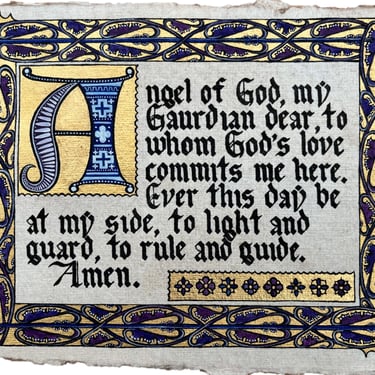 Angel of God, my
Gaurdian dear, to
whom God's love
commits me here.
Ever this day be
at my side, to light and
guard, to rule and guide.
Amen.